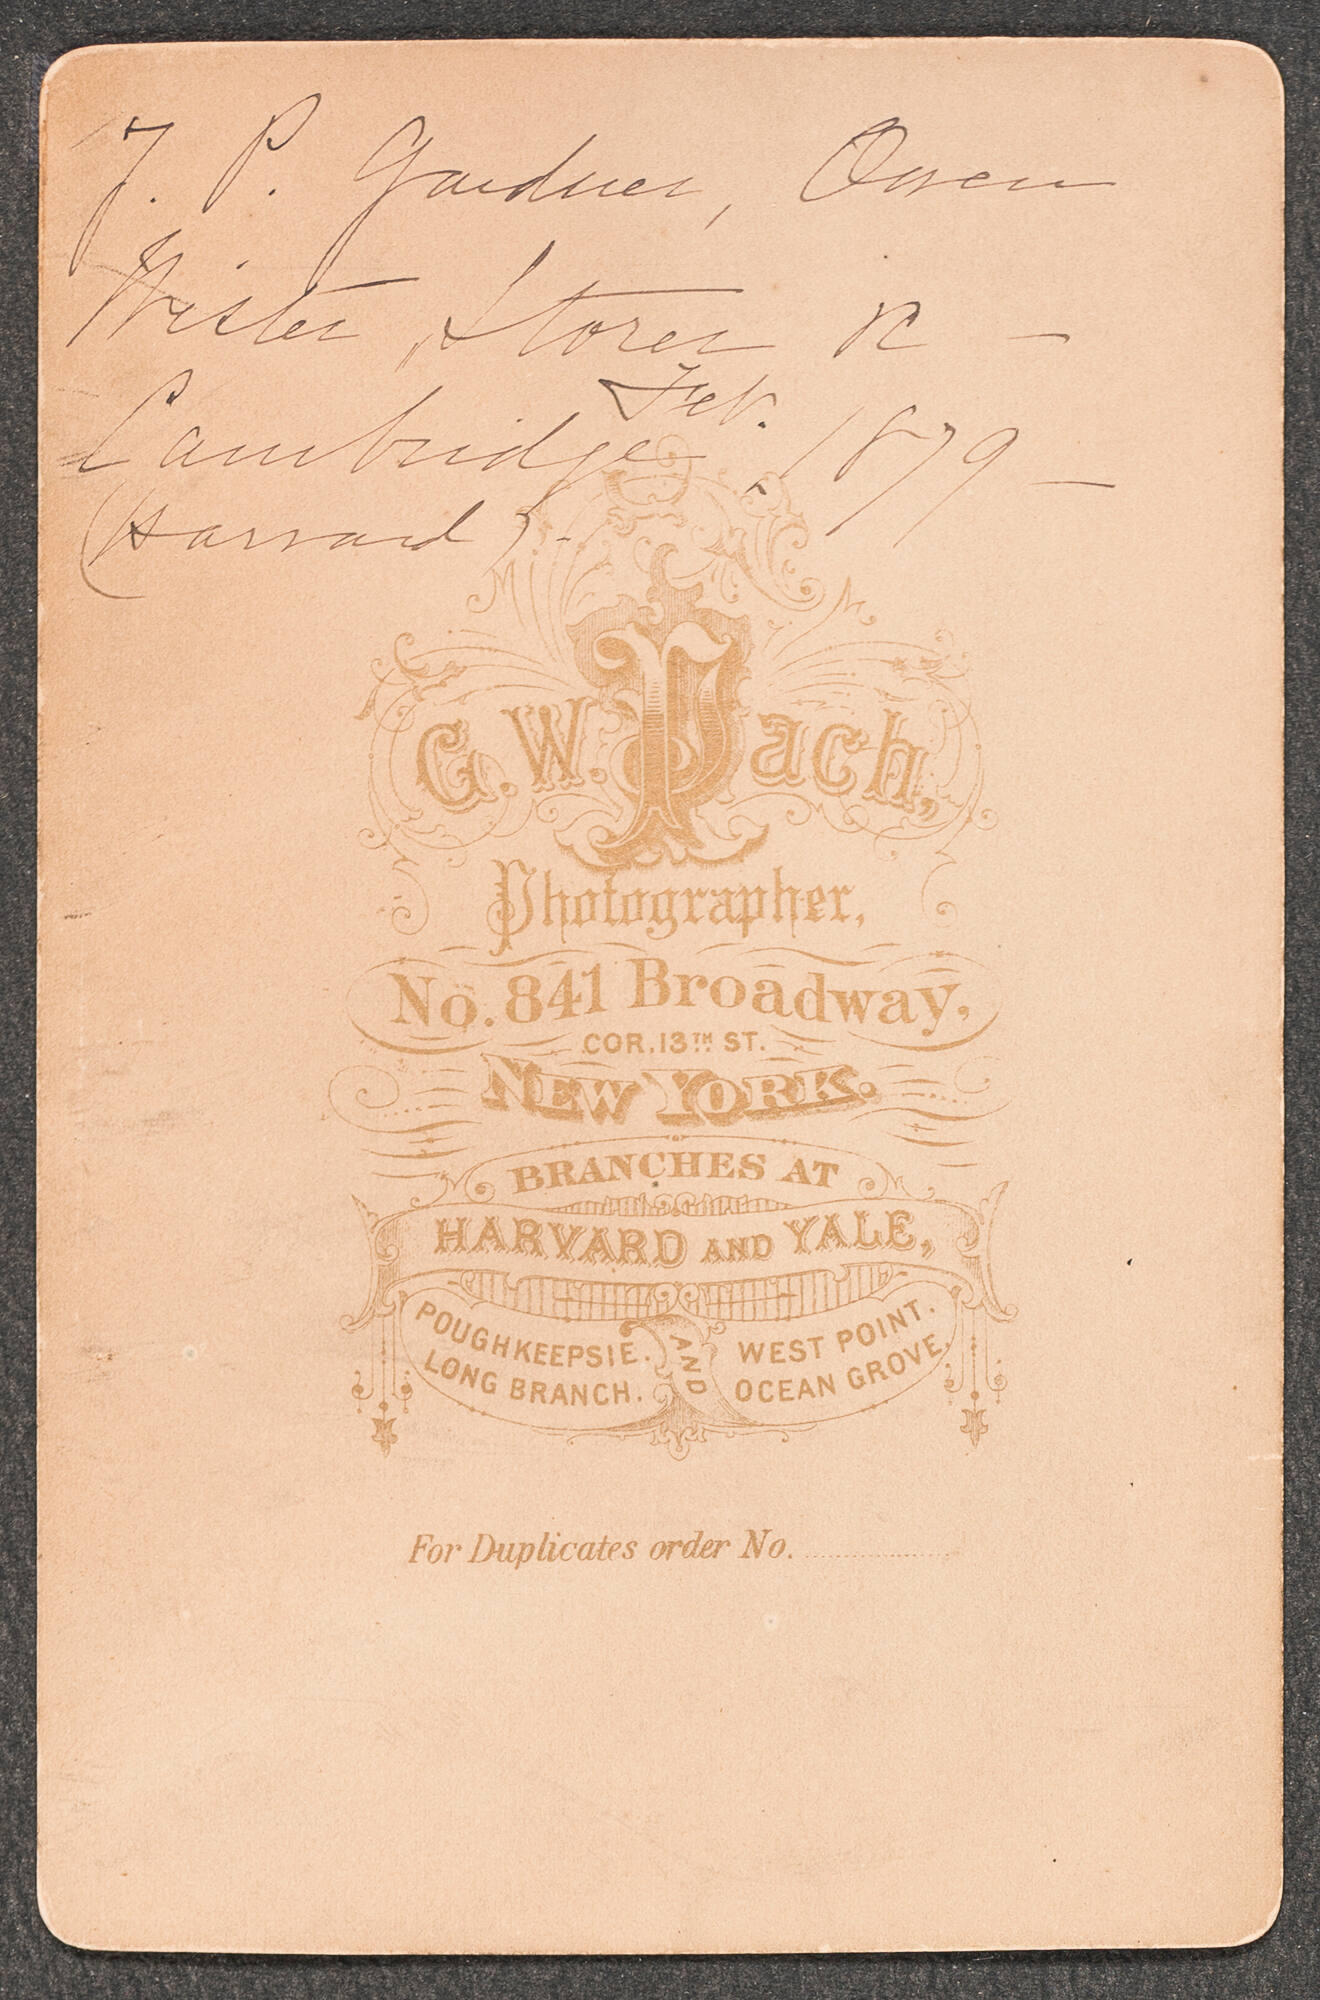 J. P. Gardner, Owen
Wister, Storer
Feb.
Cambridge, 1879 —
(Harvard).
G. W. Pach,
Photographer,
No. 841 Broadway,
COR. 13TH ST.
NEW YORK.
BRANCHES AT
HARVARD AND YALE,
POUGHKEEPSIE.
LONG BRANCH.
AND
WEST POINT.
OCEAN GROVE.
For Duplicates order No.